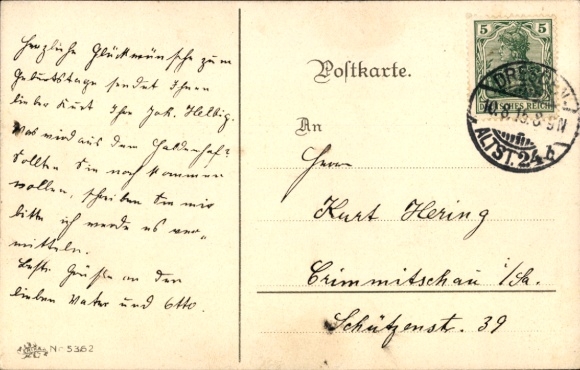 Herzliche Glückwünsche zum
Geburtstage sendet Ihnen
lieber Kurt Ihr Joh. Helbig.
Was wird aus dem
Sollten Sie noch kommen
wollen, schreiben Sie mir
bitte ich werde es ver-
mitteln.
Beste Grüße an den
lieben Vater und Otto.
Nr 5362
Postkarte.
An
Herrn
Kurt Hering
Crimmitschau i/Sa.
Schützenstr. 39
5 5
DEUTSCHES REICH
DRESDEN
10.8.13. 8-9N
ALTST. 24